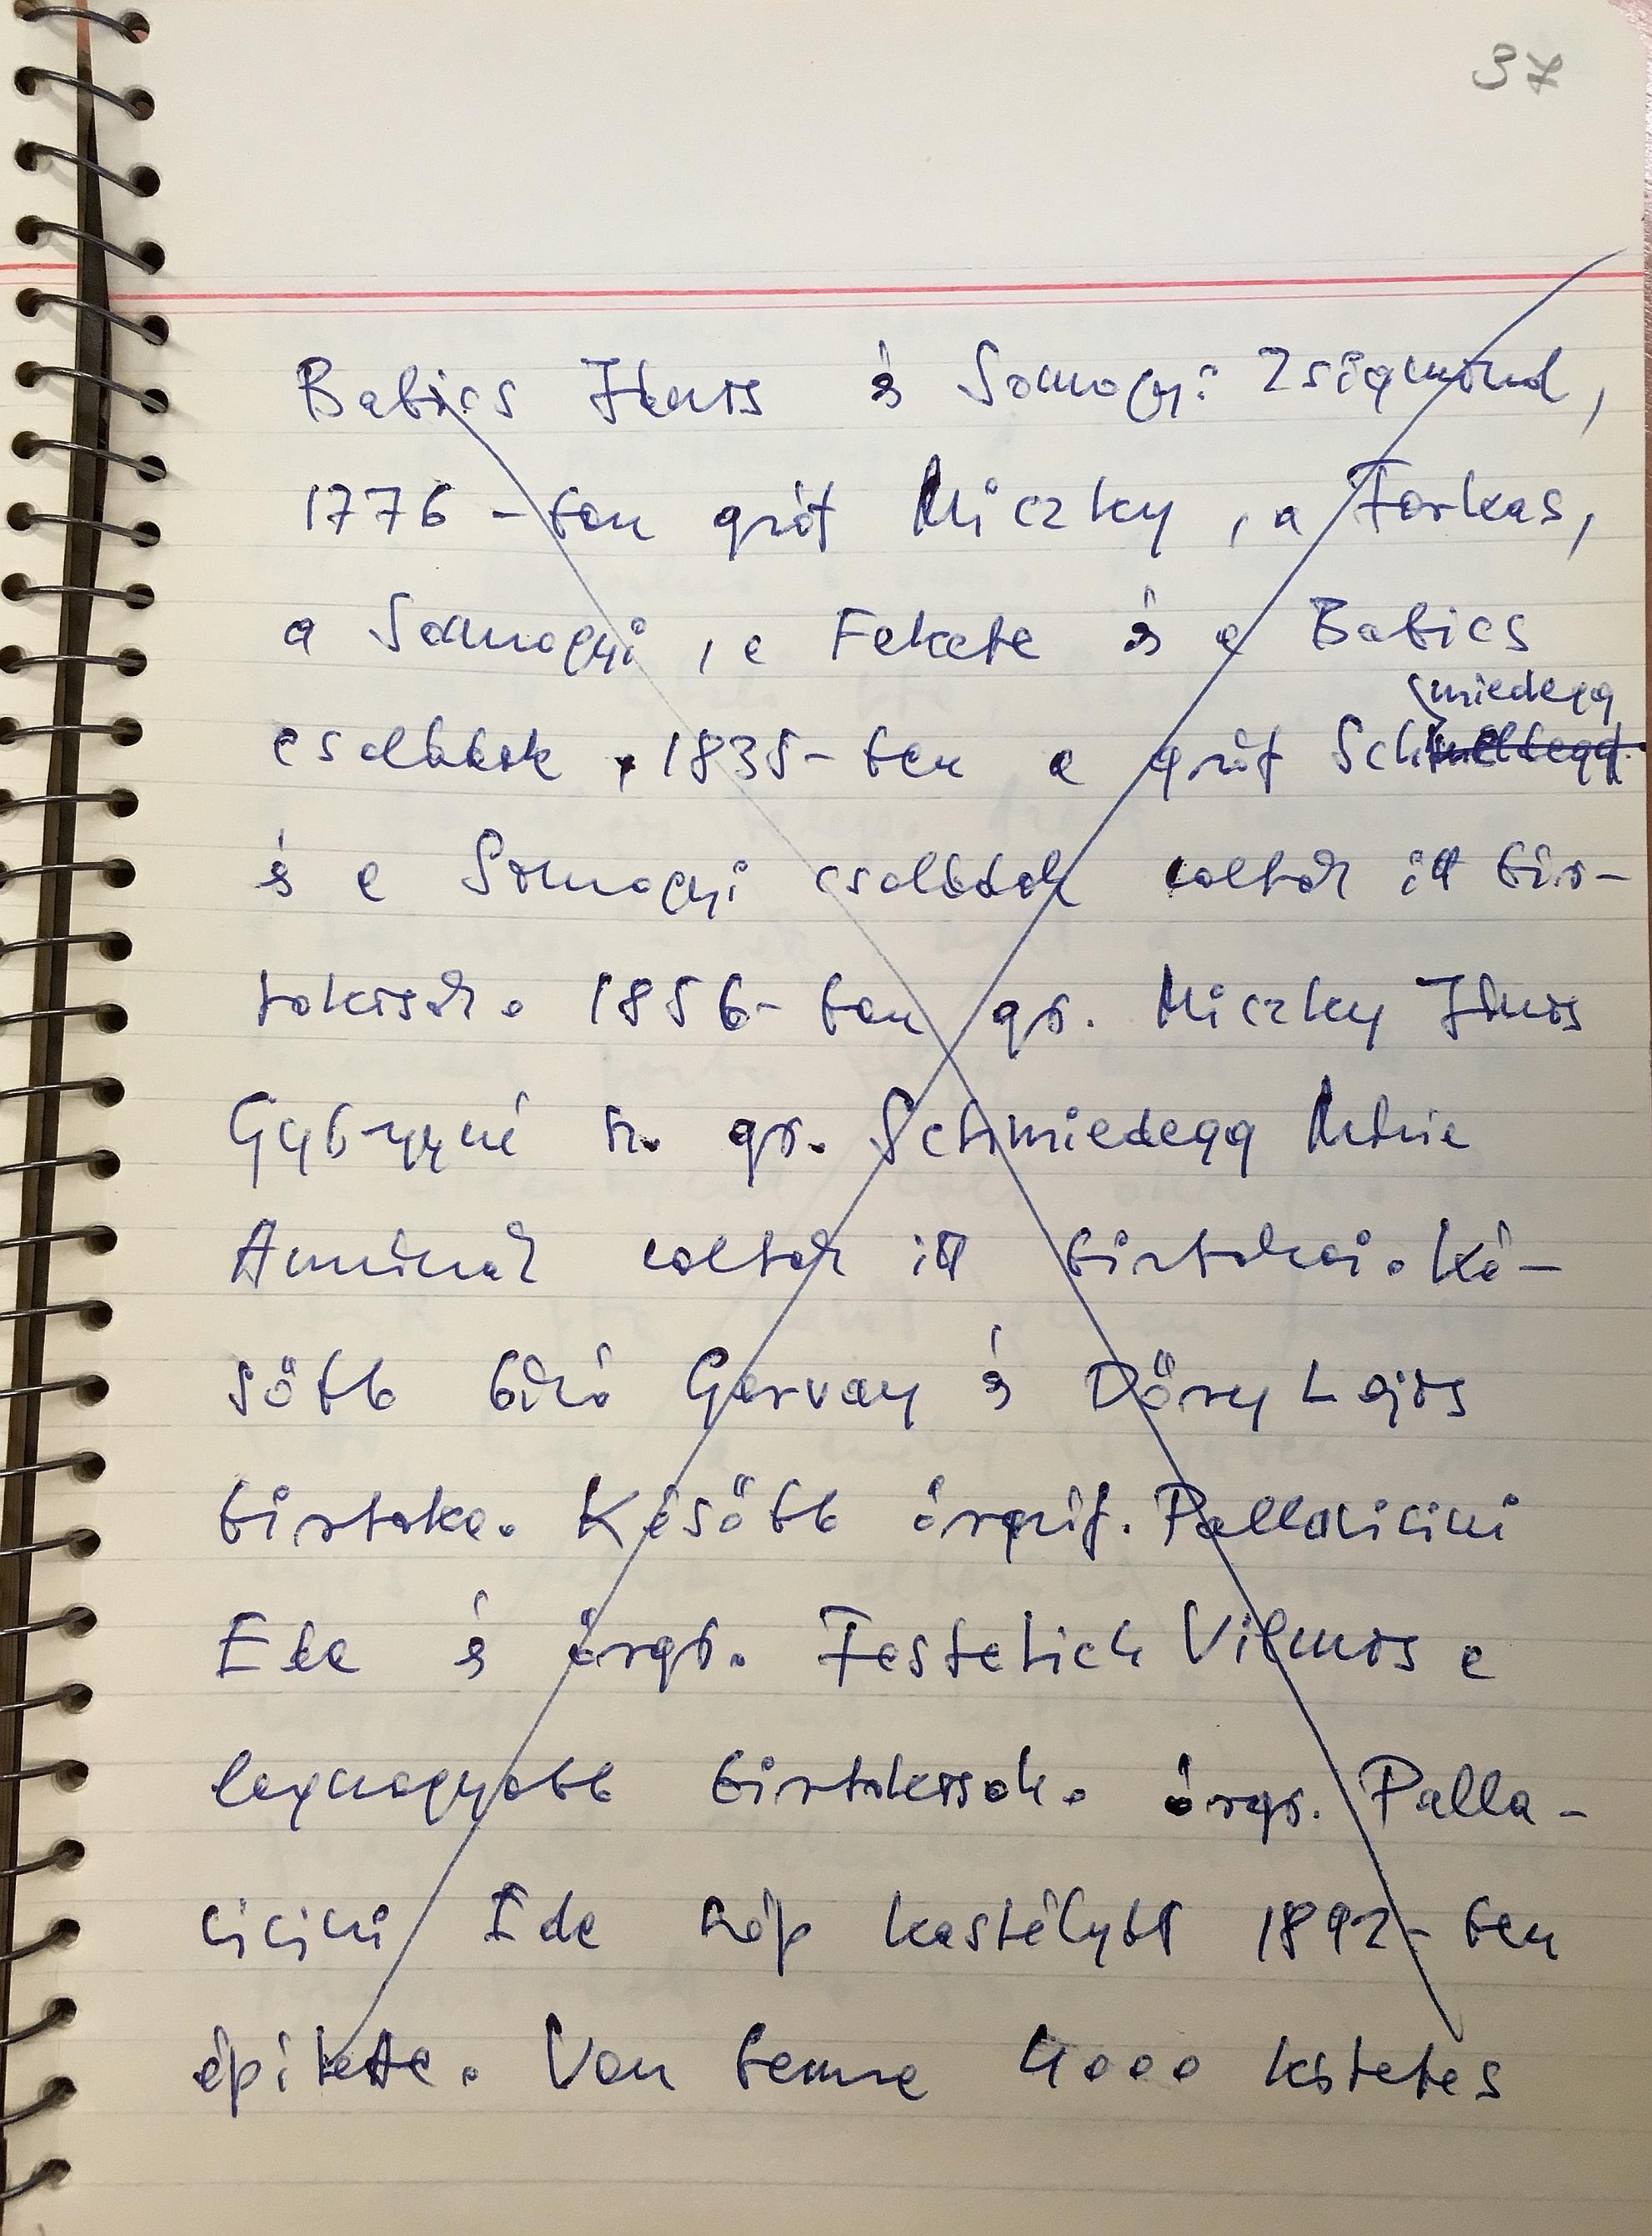 37
Babics János és Somogyi Zsigmond,
1776-ban gróf Niczky, a Farkas,
a Somogyi, a Fekete és a Babics
miedegg
családok, 1835-ben a gróf Sch
és a Somogyi családok voltak itt bir-
tokosok. 1856-ban gr. Niczky János
Györgyné sz. gr. Schmiedegg Mária
Annának voltak itt birtokai. Ké-
sőbb báró Gervay és Dőry Lajos
birtoka. Később őrgróf. Pallavicini
Ede és őrgr. Festetich Vilmos a
legnagyobb birtokosok. őrgr. Palla-
vicini Ede szép kastélyát 1892-ben
építette. Van benne 4000 kötetes